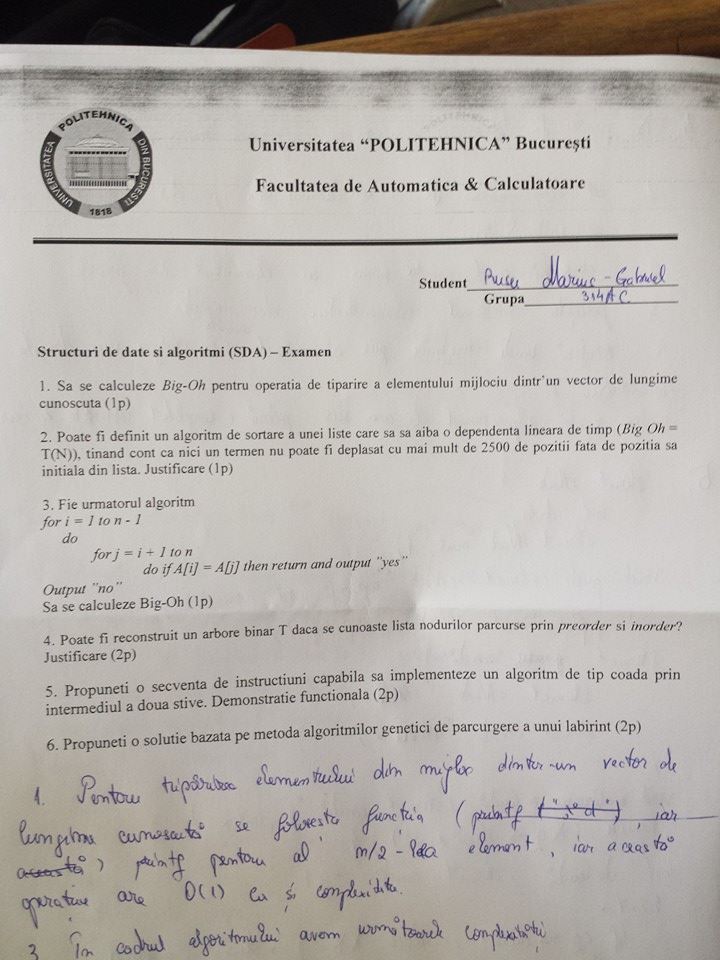 UNIVERSITATEA POLITEHNICA DIN BUCURESTI
1818
Universitatea “POLITEHNICA” Bucureşti
Facultatea de Automatica & Calculatoare
Student Rusu Marius - Gabriel
Grupa 314AC
Structuri de date si algoritmi (SDA) – Examen
1. Sa se calculeze Big-Oh pentru operatia de tiparire a elementului mijlociu dintr'un vector de lungime
cunoscuta (1p)
2. Poate fi definit un algoritm de sortare a unei liste care sa sa aiba o dependenta lineara de timp (Big Oh =
T(N)), tinand cont ca nici un termen nu poate fi deplasat cu mai mult de 2500 de pozitii fata de pozitia sa
initiala din lista. Justificare (1p)
3. Fie urmatorul algoritm
for i = 1 to n - 1
do
for j = i + 1 to n
do if A[i] = A[j] then return and output "yes"
Output "no"
Sa se calculeze Big-Oh (1p)
4. Poate fi reconstruit un arbore binar T daca se cunoaste lista nodurilor parcurse prin preorder si inorder?
Justificare (2p)
5. Propuneti o secventa de instructiuni capabila sa implementeze un algoritm de tip coada prin
intermediul a doua stive. Demonstratie functionala (2p)
6. Propuneti o solutie bazata pe metoda algoritmilor genetici de parcurgere a unui labirint (2p)
1. Pentru tipărirea elementului din mijloc dintr-un vector de
lungime cunoscută se folosește funcția (printf , iar
printf pentru al n/2 - lea element, iar această
operațiune are O(1) ca și complexitate.
3 În cadrul algoritmului avem următoarele complexități